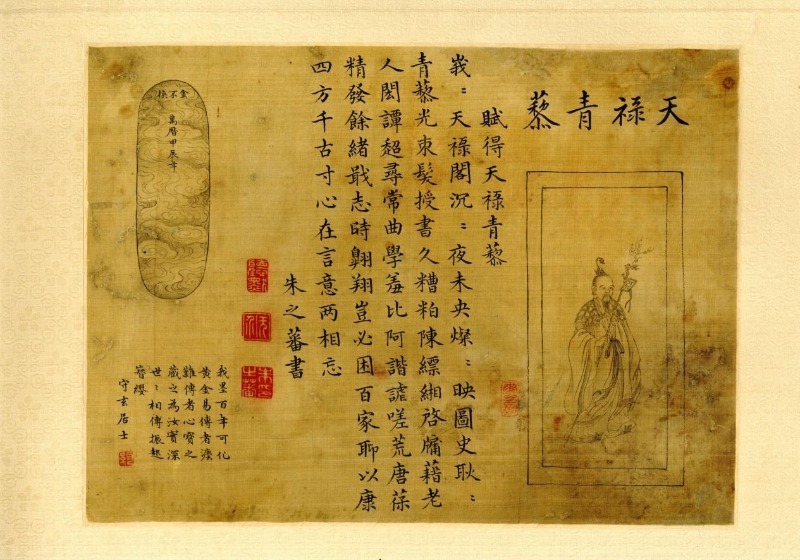 天祿青藜
賦得天祿青藜
峩〻天祿閣沉〻夜未央燦〻映圖史耿〻
青藜光束髮授書久糟粕陳縹緗啓牖藉老
人閎譚超尋常曲學羞比阿諧謔嗟荒唐葆
精發餘緒戢志時翺翔豈必困百家聊以康
四方千古寸心在言意两相忘
朱之蕃書
金不換
萬曆甲辰年
我墨百年可化
黃金易傳者
難傳者心寶之
藏之為汝寶深
世〻相傳振起
簪纓
守玄居士